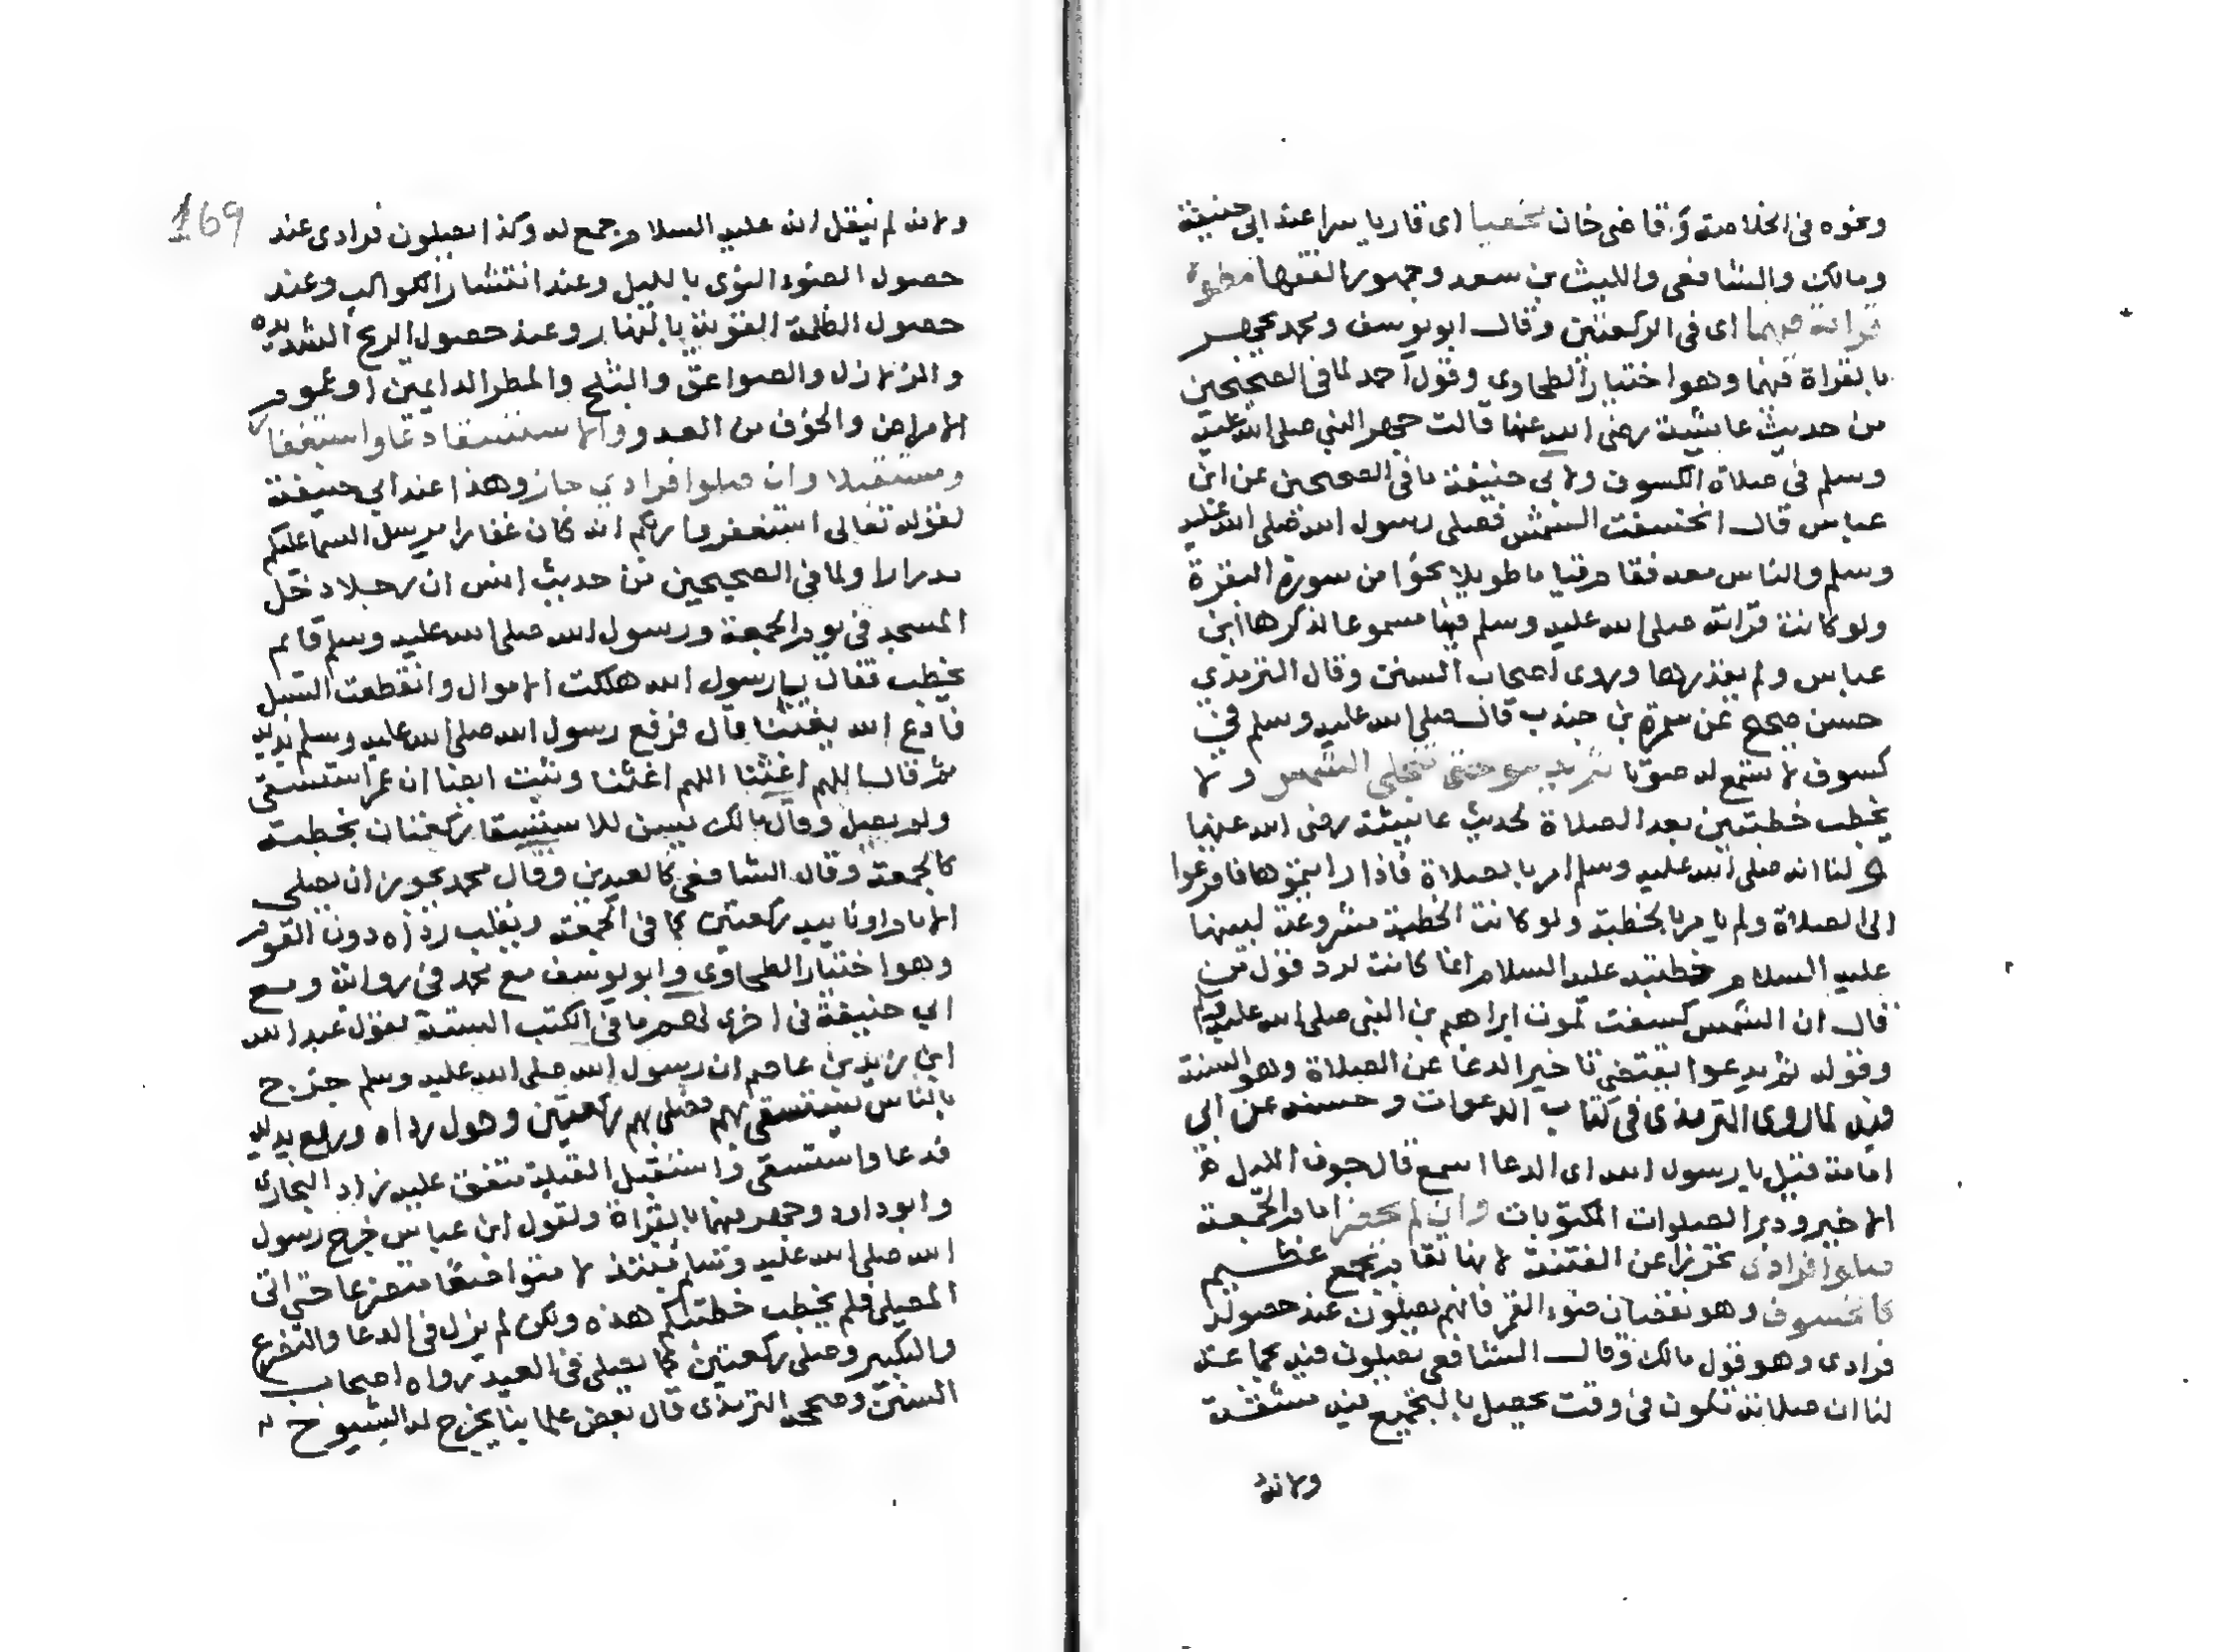 ونحوه فى الخلاصة وقاضى خان مخفيا اى قاريا سرا عند ابى حنيفة
ومالك والشافعى والليث بن سعد وجمهور الفقها مطولا
قراته فيهما اى فى الركعتين وقال ابو يوسف ومحمد يجهر
بالقراة فيهما وهو اختيار الطحاوى وقول احمد لما فى الصحيحين
من حديث عايشة رضى الله عنها قالت جهر النبى صلى الله عليه
وسلم فى صلاة الكسوف ولابى حنيفة ما فى الصحيحين عن ابن
عباس قال انخسفت الشمس فصلى رسول الله صلى الله عليه
وسلم والناس معه فقام قياما طويلا نحوا من سورة البقرة
ولو كانت قراته صلى الله عليه وسلم فيها مسموعا لذكرها ابن
عباس ولم يقدرها وروى اصحاب السنن وقال الترمذى
حسن صحيح عن سمرة بن جندب قال صلى الله عليه وسلم فى
كسوف لا نسمع له صوتا ثم يدعو حتى تنجلى الشمس ولا
يخطب خطبتين بعد الصلاة لحديث عائيشة رضى الله عنها
ولنا انه صلى الله عليه وسلم امر بالصلاة فاذا رايتموها فافزعوا
الى الصلاة ولم يامر بالخطبة ولو كانت الخطبة مشروعة لبينها
عليه السلام خطبته عليه السلام انما كانت لرد قول من
قال ان الشمس كسفت لموت ابراهيم بن النبى صلى الله عليه وسلم
وقوله ثم يدعوا يقتضى تاخير الدعا عن الصلاة وهو السنة
فيه لما روى الترمذى فى كتاب الدعوات وحسنه عن ابى
امامة قيل يا رسول الله اى الدعا اسمع قال جوف الليل
الاخير ودبر الصلوات المكتوبات وان لم يحضر امام الجمعة
صلوا فرادى تحرزا عن الفتنة لانها تقام بجمع عظيم
كالخسوف وهو نقصان ضوء القمر فانهم يصلون عند حصوله
فرادى وهو قول مالك وقال الشافعى يصلون فيه بجماعة
لنا ان صلاته تكون فى وقت يحصل بالتجميع فيه مشقة
ولانه
169
ولانه لم ينقل انه عليه السلام جمع له وكذا يصلون فرادى عند
حصول الضوء القوى بالليل وعند انتشار الكواكب وعند
حصول الظلمة القوية بالنهار وعند حصول الريح الشديده
والزلازل والصواعق والثلج والمطر الدايمين وعموم
الامراض والخوف من العدو والاستسقا دعا واستغفار
ومستقبلا وان صلوا فرادى جاز وهذا عند ابى حنيفة
لقوله تعالى استغفروا ربكم انه كان غفارا يرسل السما عليكم
مدرارا ولما فى الصحيحين من حديث انس ان رجلا دخل
المسجد فى يوم الجمعة ورسول الله صلى الله عليه وسلم قائم
يخطب فقال يا رسول الله هلكت الاموال وانقطعت السبل
فادع الله يغثنا قال فرفع رسول الله صلى الله عليه وسلم يديه
ثم قال اللهم اغثنا اللهم اغثنا وثبت ايضا ان عمر استسقى
ولم يصل وقال مالك يسن للاستسقا ركعتان بخطبة
كالجمعة وقال الشافعى كالعيدين وقال محمد يجوز ان يصلى
الامام او نايبه ركعتين كما فى الجمعة ويقلب رداه دون القوم
وهو اختيار الطحاوى وابو يوسف مع محمد فى رواية ومع
ابى حنيفة فى اخرى لهم ما فى الكتب الستة لقول عبد الله
ابن زيد بن عاصم ان رسول الله صلى الله عليه وسلم خرج
بالناس يستسقى بهم فصلى بهم ركعتين وحول رداه ورفع يديه
فدعا واستسقى واستقبل القبلة متفق عليه زاد البخارى
وابو داود وجهر فيهما بالقراة ولقول ابن عباس خرج رسول
الله صلى الله عليه وسلم متواضعا متضرعا حتى اتى
المصلى فلم يخطب خطبتكم هذه ولكن لم يزل فى الدعا والتضرع
والتكبير وصلى ركعتين كما يصلى فى العيد رواه اصحاب
السنن وصححه الترمذى قال بعض علماينا يخرج له الشيوخ